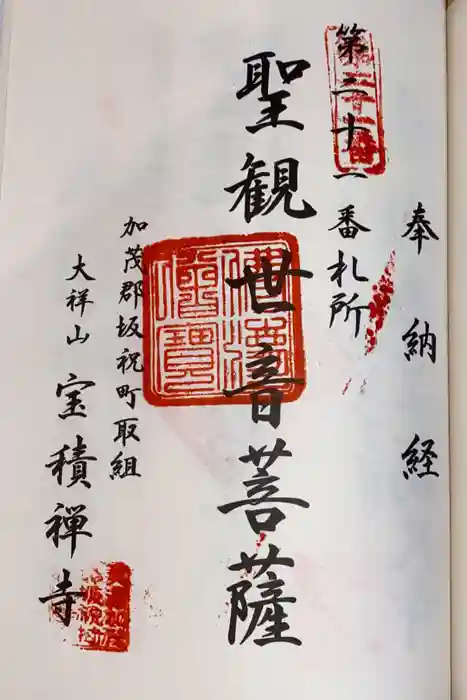 奉納経
第二十一番札所
聖観世音菩薩
加茂郡坂祝町取組
大祥山 宝積禅寺
佛法僧寳